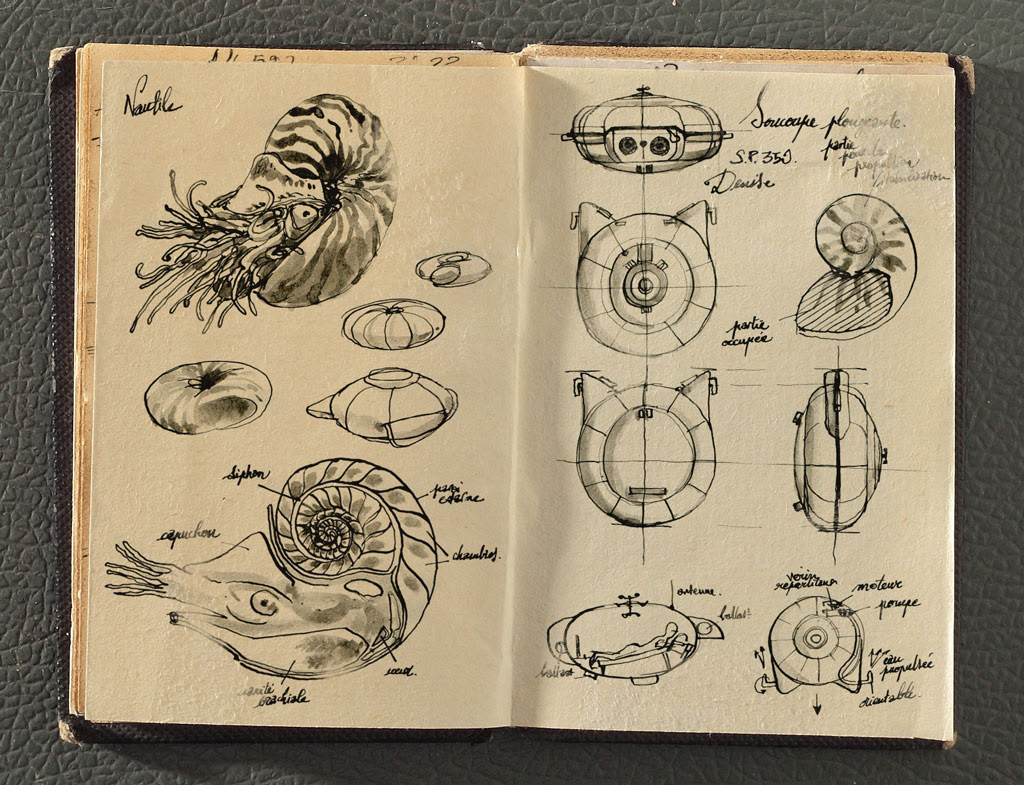 Nautile
siphon
paroi
externe
capuchon
chambres.
cavité
brachiale
coeur.
Soucoupe plongeante.
S.P. 350.
Denise
partie
pour la
propulsion
partie
occupée
antenne.
ballast
ballast
moteur
pompe
eau
propulsée
orientable.